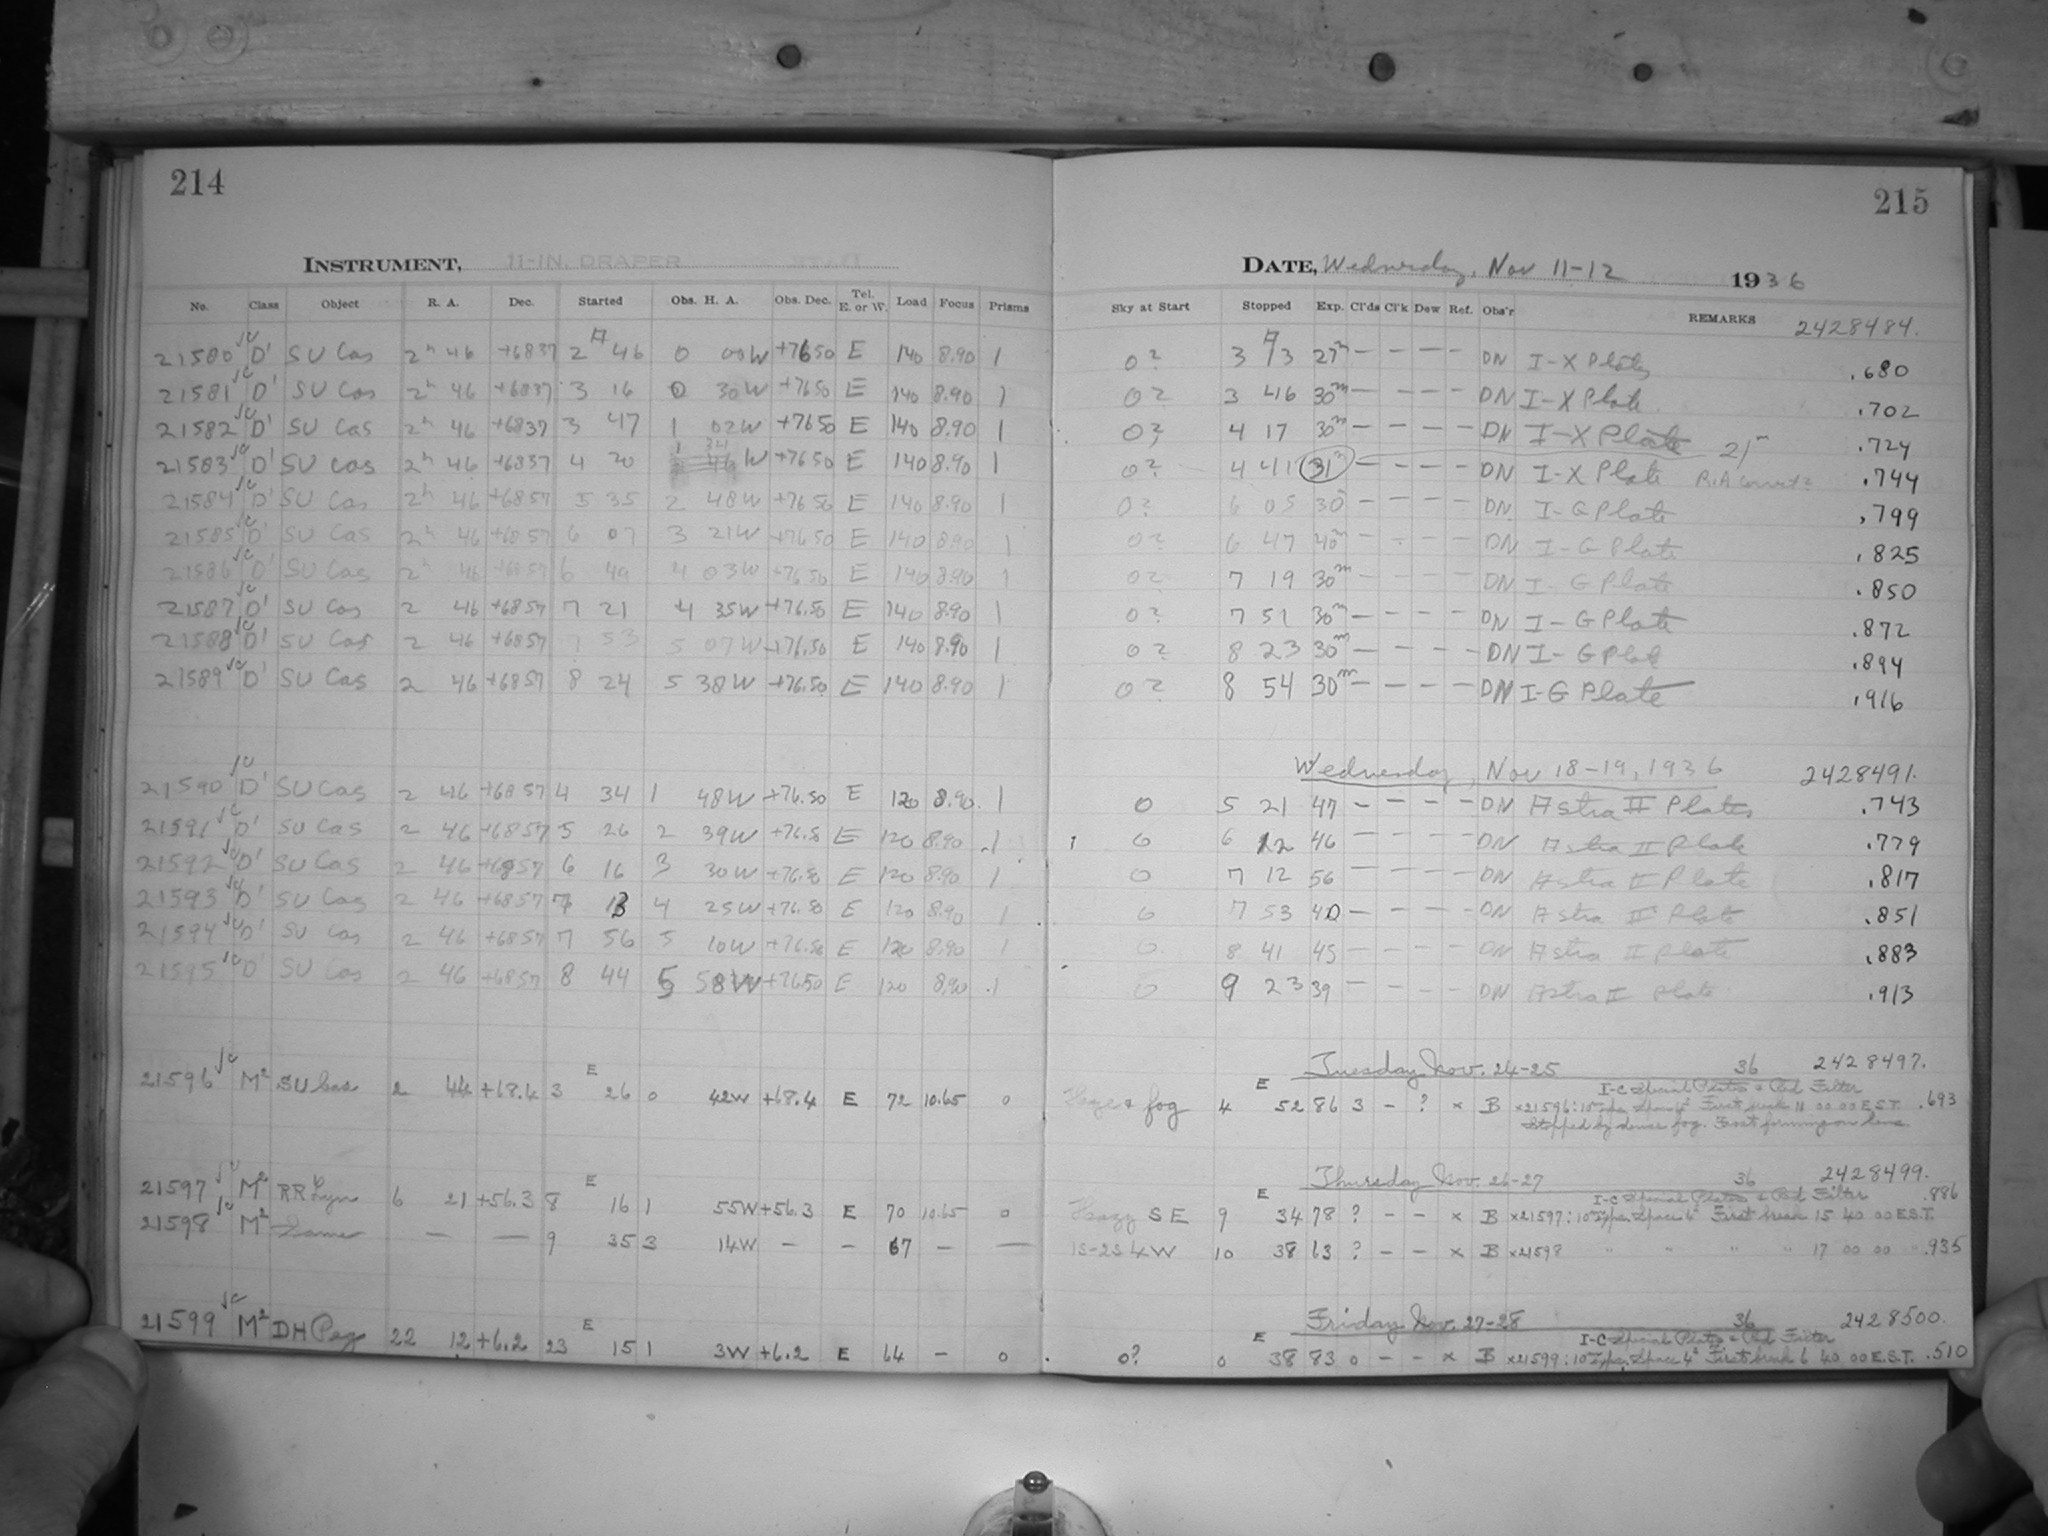 214
215
INSTRUMENT, 11-IN. DRAPER
DATE, Wednesday, Nov 11-12 1936
No. Class Object R. A. Dec. Started Obs. H. A. Obs. Dec. Tel. E. or W. Load Focus Prisms Sky at Start Stopped Exp. Cl'ds Cl'k Dew Ref. Obs'r REMARKS 2428484.
21580 D' SU Cas 2h 46 +6837 2 46 0 00W +7650 E 140 8.90 1 0? 3 13 27m – – – – DN I-X Plates .680
21581 D' SU Cas 2h 46 +6837 3 16 0 30W +7650 E 140 8.90 1 0? 3 46 30m – – – – DN I-X Plate .702
21582 D' SU Cas 2h 46 +6837 3 47 1 02W +7650 E 140 8.90 1 0? 4 17 30m – – – – DN I-X Plate .724
21583 D' SU Cas 2h 46 +6857 4 20 1 34 W +7650 E 140 8.90 1 0? 4 41 31m – – – – DN I-X Plate 21m R.A correct? .744
21584 D' SU Cas 2h 46 +6857 5 35 2 48W +7650 E 140 8.90 1 0? 6 05 30 – – – – DN I-G Plate .799
21585 D' SU Cas 2h 46 +6857 6 07 3 21W +7650 E 140 8.90 1 0? 6 47 40m – – – – DN I-G Plate .825
21586 D' SU Cas 2h 46 +6857 6 49 4 03W +76.50 E 140 8.90 1 0? 7 19 30m – – – – DN I-G Plate .850
21587 D' SU Cas 2 46 +6857 7 21 4 35W +76.50 E 140 8.90 1 0? 7 51 30m – – – – DN I-G Plate .872
21588 D' SU Cas 2 46 +6857 7 53 5 07W +76.50 E 140 8.90 1 0? 8 23 30m – – – – DN I-G Plate .894
21589 D' SU Cas 2 46 +6857 8 24 5 38W +76.50 E 140 8.90 1 0? 8 54 30m – – – – DN I-G Plate .916
Wednesday, Nov 18-19, 1936 2428491.
21590 D' SU Cas 2 46 +6857 4 34 1 48W +76.50 E 120 8.90 1 0 5 21 47 – – – – DN Astra II Plates .743
21591 D' SU Cas 2 46 +6857 5 26 2 39W +76.5 E 120 8.90 1 0 6 12 46 – – – – DN Astra II Plate .779
21592 D' SU Cas 2 46 +6857 6 16 3 30W +76.50 E 120 8.90 1 0 7 12 56 – – – – DN Astra II Plate .817
21593 D' SU Cas 2 46 +6857 7 13 4 25W +76.50 E 120 8.90 1 0 7 53 40 – – – – DN Astra II Plate .851
21594 D' SU Cas 2 46 +6857 7 56 5 10W +76.50 E 120 8.90 1 0 8 41 45 – – – – DN Astra II Plate .883
21595 D' SU Cas 2 46 +6857 8 44 5 58W +7650 E 120 8.90 1 0 9 23 39 – – – – DN Astra II Plate .913
Tuesday Nov. 24-25 36 2428497.
I-C Special Plates + Red Filter
21596 M² SU Cas 2 44 +68.4 3 E 26 0 42W +68.4 E 72 10.65 0 Haze & fog 4 E 52 86 3 – ? x B x21596: 10 Exps. Space 4² First break 11 00 00 E.S.T. .693
Stopped by dense fog. Frost forming on lens.
Thursday Nov. 26-27 36 2428499.
I-C Special Plates + Red Filter .886
21597 M² RR Lyn 6 21 +56.3 8 E 16 1 55W +56.3 E 70 10.65 0 Hazy SE 9 E 34 78 ? – – x B x21597: 10 Exps. Space 4² First break 15 40 00 E.S.T.
21598 M² Same – – 9 35 3 14W – – 67 – – 1S-2S 4W 10 38 63 ? – – x B x21598 " " " " 17 00 00 " .935
Friday Nov. 27-28 36 2428500.
I-C Special Plates + Red Filter
21599 M² DH Peg 22 12 +6.2 23 E 15 1 3W +6.2 E 64 – 0 0? 0 E 38 83 0 – – x B x21599: 10 Exps. Space 4² First break 6 40 00 E.S.T. .510